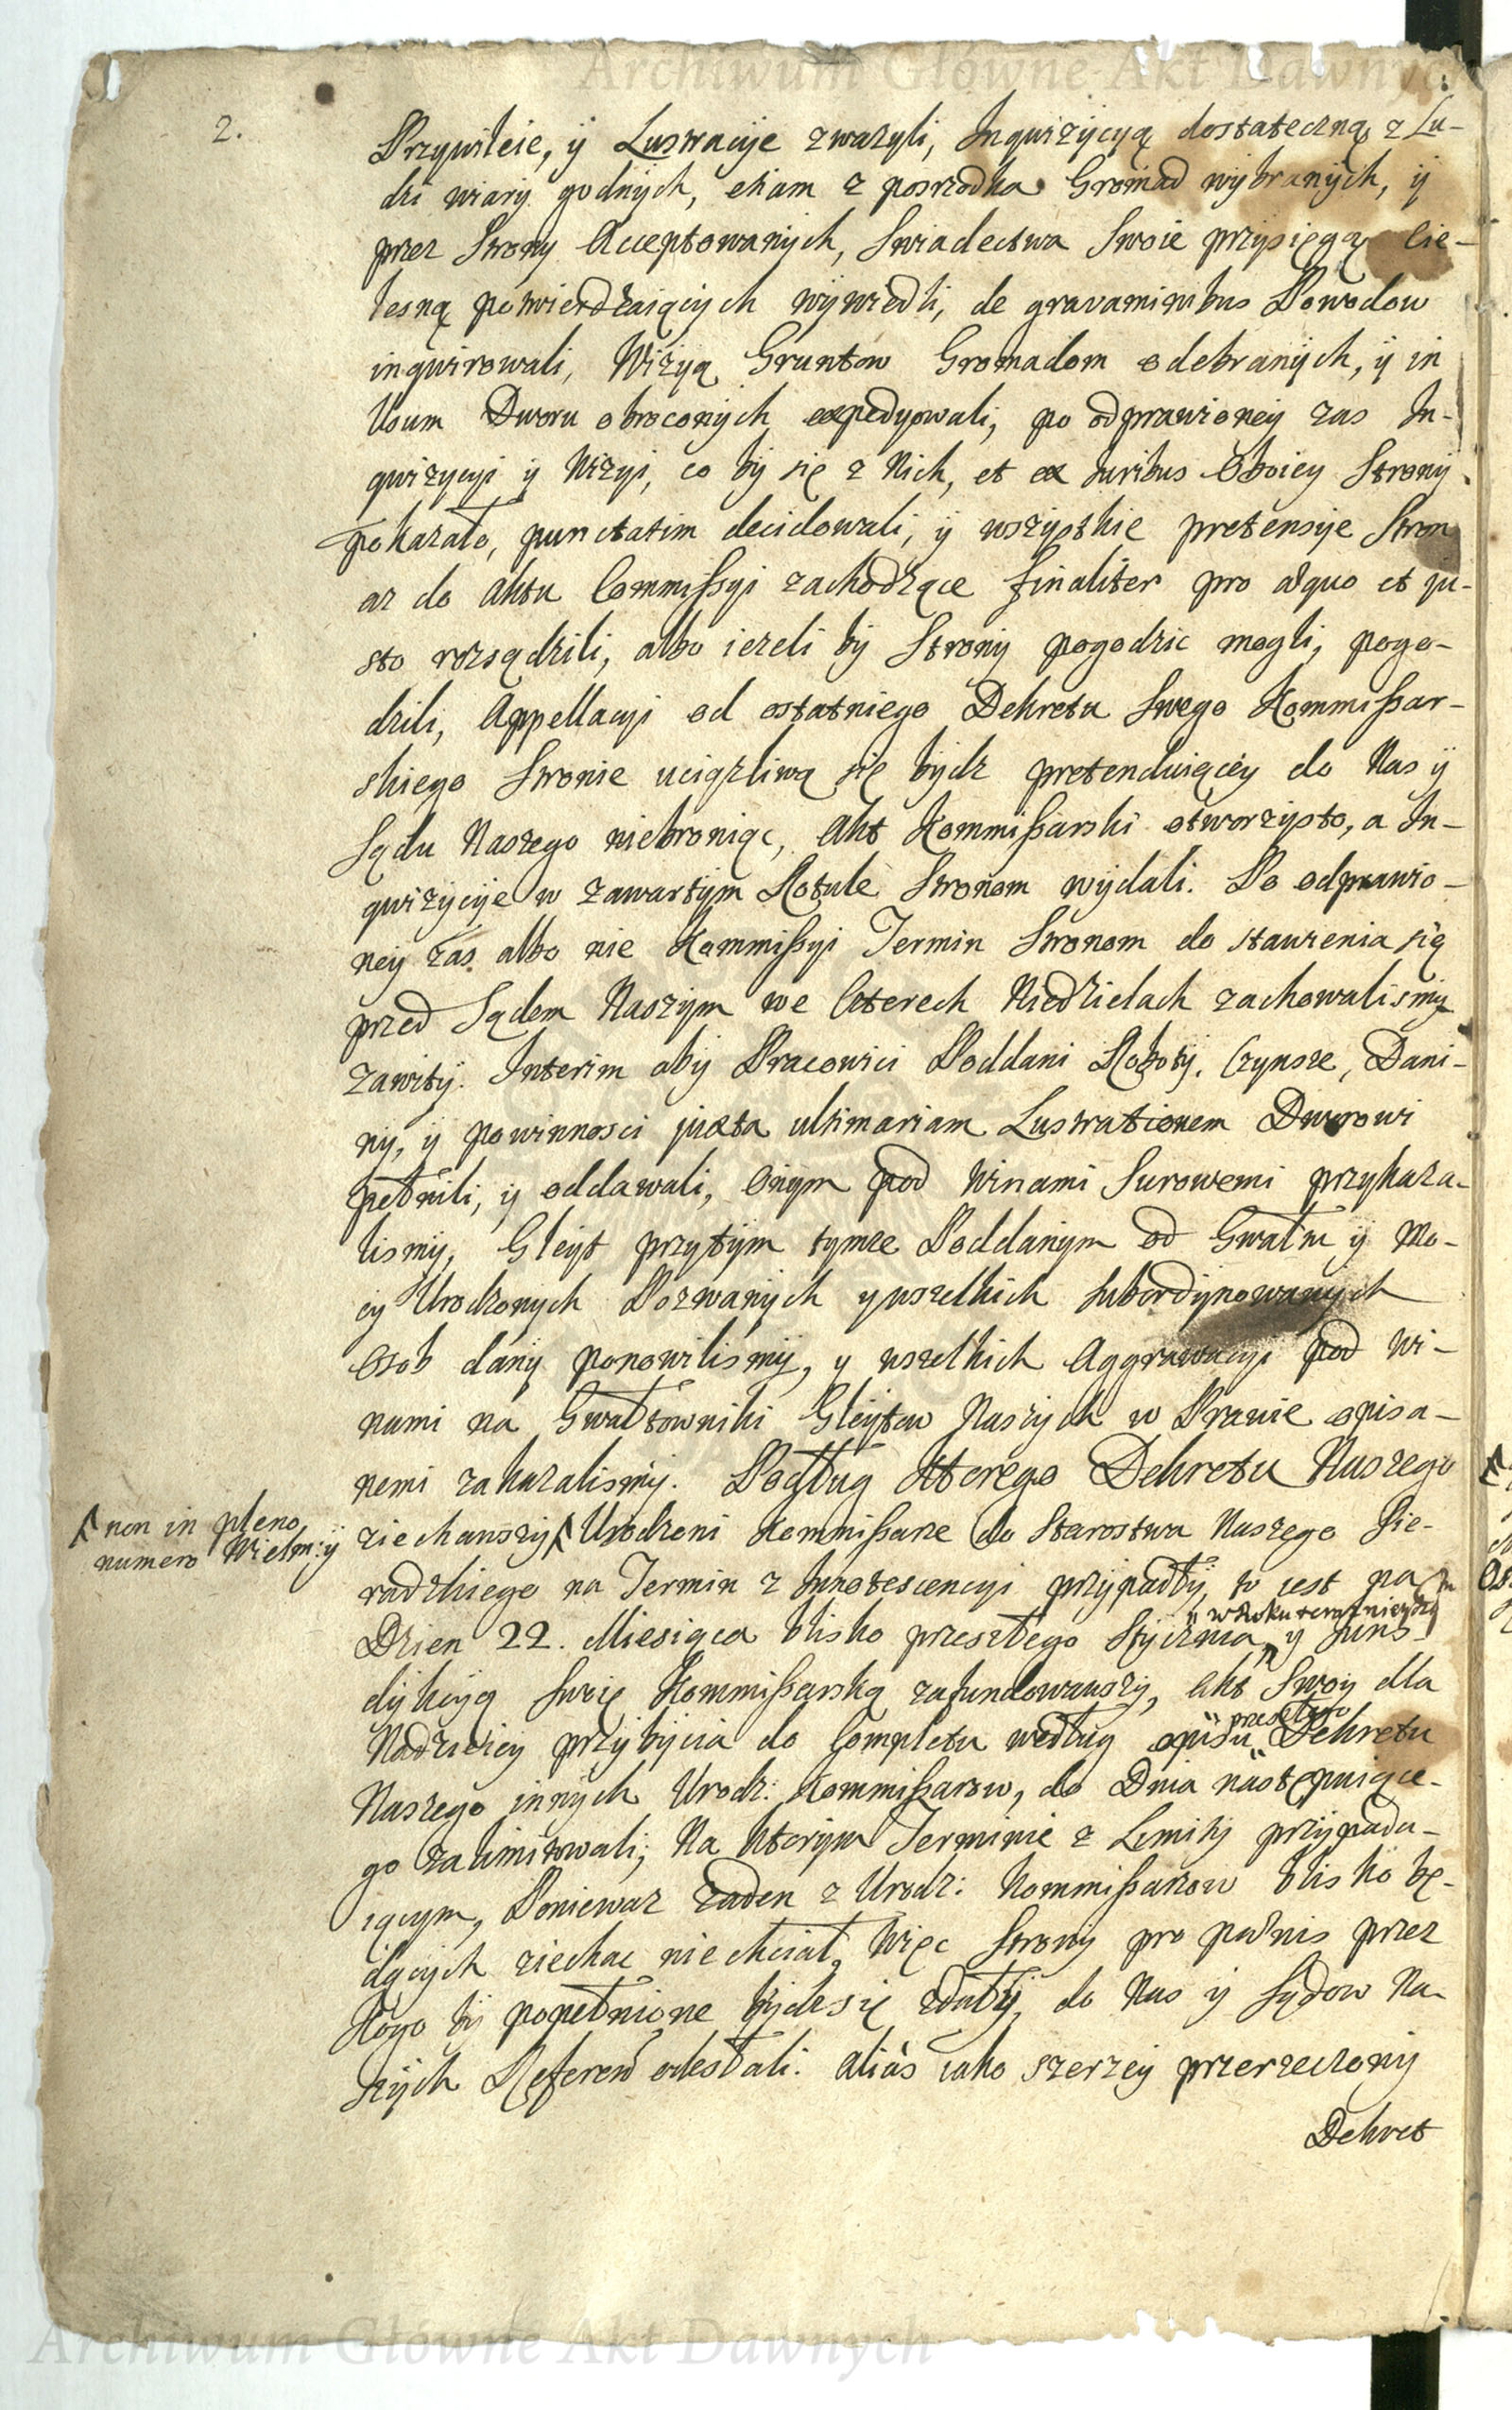 Archiwum Główne Akt Dawnych
2.
Przywileie, ÿ Lustracyie zwazyli, Inqwizycyą dostateczną z Lu-
dzi wiary godnych, etiam z posrzodka Gromad wybranych, ÿ
przez Strony Acceptowanych, Swiadectwa Swoie przysięgą Cie-
lesną potwierdzaiących wywiedli, de gravaminibus Powodow
inqwirowali, Wizyą Gruntow Gromadom odebranych, ÿ in
Usum Dworu obroconych expedyowali, po odprawioney zas In-
qwizycyi ÿ Wizyi, co by się z Nich, et ex Juribus Oboiey Strony
pokazało, punctatim decidowali, ÿ wszystkie pretensye Stron
az do Aktu Commissyi zachodzące finaliter pro æquo et ju-
sto rozsądzili, albo iezeli by Strony pogodzic mogli, pogo-
dzili, Appellacyi od ostatniego Dekretu Swego Kommissar-
skiego Stronie uciązliwą się bydz pretenduiącey do Nas ÿ
Sądu Naszego niebroniąc, Akt Kommissarski otworzysto, a In-
qwizycyie w zawartym Rotule Stronom wydali. Po odprawio-
ney zas albo nie Kommissyi Termin Stronom do stawienia się
przed Sądem Naszym we Czterech Niedzielach zachowalismy
zawity. Interim aby Pracowici Poddani Roboty, Czynsze, Dani-
ny, ÿ powinnosci juxta ultimariam Lustrationem Dworowi
pełnili, ÿ oddawali, Onym pod Winami Surowemi przykaza-
lismy, Gleyt przytym tymze Poddanym od Gwałtu ÿ Mo-
cy Urodzonych Pozwanych y wszelkich Subordynowanych
Osob dany ponowilismy, y wszelkich Aggrawacyi pod Wi-
nami na Gwałtowniki Gleytow Naszych w Prawie opisa-
nemi zakazalismy. Podług ktorego Dekretu Naszego
non in pleno
numero Wielm: ÿ
ziechawszy Urodzeni Kommissarze do Starostwa Naszego Sie-
radzkiego na Termin z Innotescencyi przypadły, to iest na
w Roku teraznieyszym
Dzien 22. Miesiąca blisko przeszłego Stycznia, y Juris-
dykcyą Swię Kommissarską zafundowawszy, Akt Swoy dla
przeszłego
Nadzieiey przybycia do Completu według opisu Dekretu
Naszego innych Urodz: Kommissarzow, do Dnia następuiące-
go zalimitowali; Na ktorym Terminie z Limity przypada-
iącym, Poniewaz zaden z Urodz: Kommissarzow blisko bę-
dących ziechac nie chciał, Więc Strony pro pœnis przez
Kogo by popełnione bydz się zdały, do Nas ÿ Sądow Na-
szych Referend odesłali. Aliàs iako szerzey przerzeczony
Dekret
Archiwum Główne Akt Dawnych